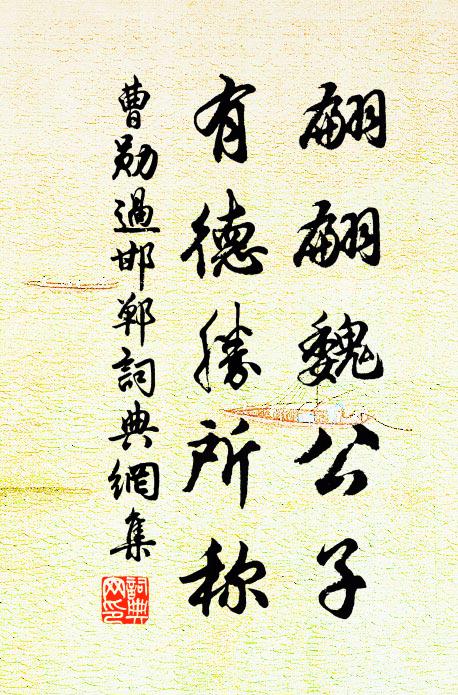 翩翩魏公子
有德勝所称
曹勛過邯鄲詞典網集
詞典
网印